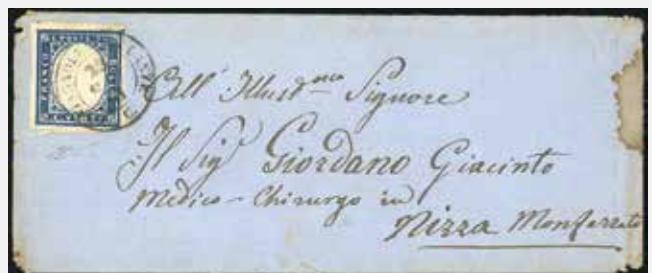 All' Illustmo Signore
Il Sigr Giordano Giacinto
Medico-Chirurgo in
Nizza Monferrato